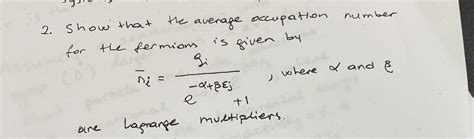 2. Show that the average occupation number
for the fermions is given by
n̄i = gi / e^(-α+βEj) +1 , where α and β
are Lagrange multipliers.